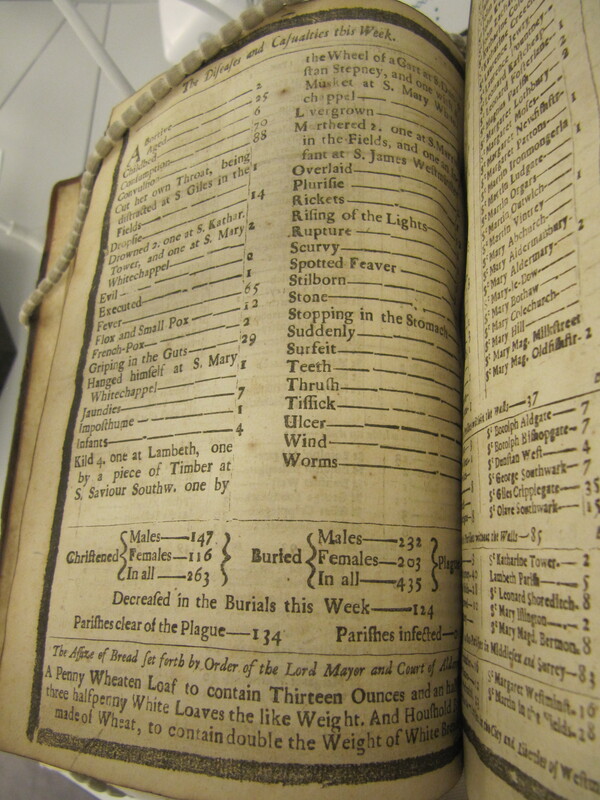 The Diseases and Casualties this Week.
Abortive 2
Aged 25
Childbed 6
Consumption 70
Convulsion 88
Cut her own Throat, being
distracted at S Giles in the 1
Fields
Dropsie 14
Drowned 2. one at S. Kathar.
Tower, and one at S. Mary 2
Whitechappel
Evil
Executed 1
Fever 65
Flox and Small Pox 12
French-Pox 2
Griping in the Guts 29
Hanged himself at S. Mary 1
Whitechappel
Jaundies 7
Imposthume 1
Infants 4
Kild 4. one at Lambeth, one
by a piece of Timber at
S. Saviour Southw. one by
the Wheel of a Cart at S.
stan Stepney, and one
Musket at S. Mary Wh
chappel
Livergrown
Murthered 2. one at S. Mart
in the Fields, and one
fant at S. James Westm
Overlaid
Plurisie
Rickets
Rising of the Lights
Rupture
Scurvy
Spotted Feaver
Stilborn
Stone
Stopping in the Stomach
Suddenly
Surfeit
Teeth
Thrush
Tissick
Ulcer
Wind
Worms
Christened Males 147
Females 116
In all 263
Buried Males 232
Females 203
In all 435
Plag
Decreased in the Burials this Week 124
Parishes clear of the Plague 134 Parishes infected
The Assize of Bread set forth by Order of the Lord Mayor and Court of Alder
A Penny Wheaten Loaf to contain Thirteen Ounces and an hal
three halfpenny White Loaves the like Weight. And Houshold
made of Wheat, to contain double the Weight of White
Martin Ludgate
Martin Orgars
Martin Vintrey
Mary Abchurch
Mary Aldermanbury 2
Mary Aldermary
Mary le Bow
Mary Bothaw
Mary Colechurch
Mary Hill
Sᵗ Mary Mag. Milkstreet
Sᵗ Mary Mag. Oldfishstr 2
within the Walls 37
Sᵗ Botolph Aldgate 7
Sᵗ Botolph Bishopgate 7
Sᵗ Dunstan West 4
Sᵗ George Southwark 7
Sᵗ Giles Cripplegate 35
Sᵗ Olave Southwark 15
without the Walls 85
Sᵗ Katharine Tower 2
Lambeth Parish 5
Sᵗ Leonard Shoreditch 8
Sᵗ Mary Islington 2
Sᵗ Mary Magd. Bermon. 8
in Middlesex and Surrey 83
Sᵗ Margaret Westminst. 16
Sᵗ Martin in the Fields 28
in the City and Liberties of Westm